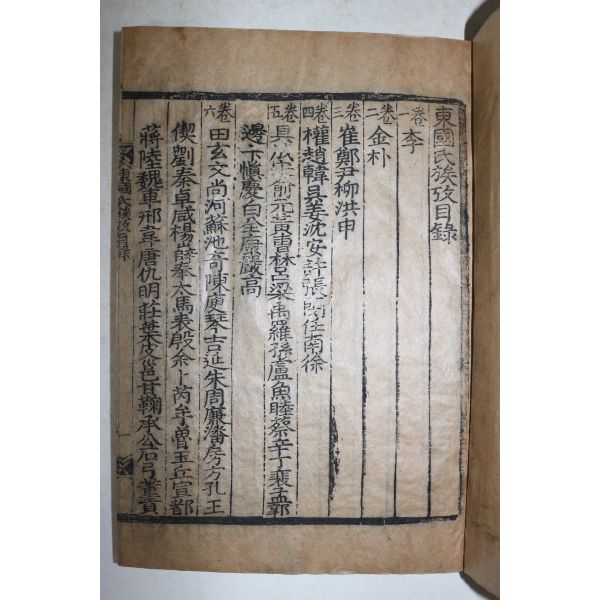 東國氏族攷目錄
卷一
李
卷二
金朴
卷三
崔鄭尹柳洪申
卷四
權趙韓吳姜沈安許張閔任南徐
卷五
具成兪元黃曺林呂梁禹羅孫盧魚睦蔡辛丁裵孟郭
邊卞愼慶白全康嚴高
卷六
田玄文尚河蘇池奇陳庾琴吉延朱周廉潘房方孔王
偰劉秦卓咸楊薛奉太馬表殷余卜芮牟魯玉丘宣都
蔣陸魏車邢韋唐仇明莊葉皮邕甘鞠承公石弓董賓
東國氏族攷目錄
一